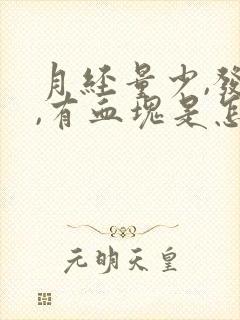 月经量少,發
,有血塊是怎
元明天皇